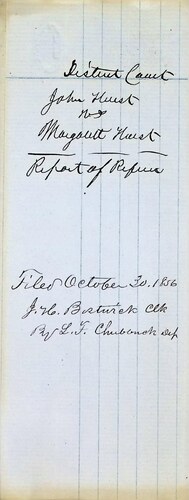 District Court
John Hurst
vs
Margarett Hurst
Report of Referee
Filed October 30. 1856
J. H. Bostwick Clk
By L. F. Chubanck Dep